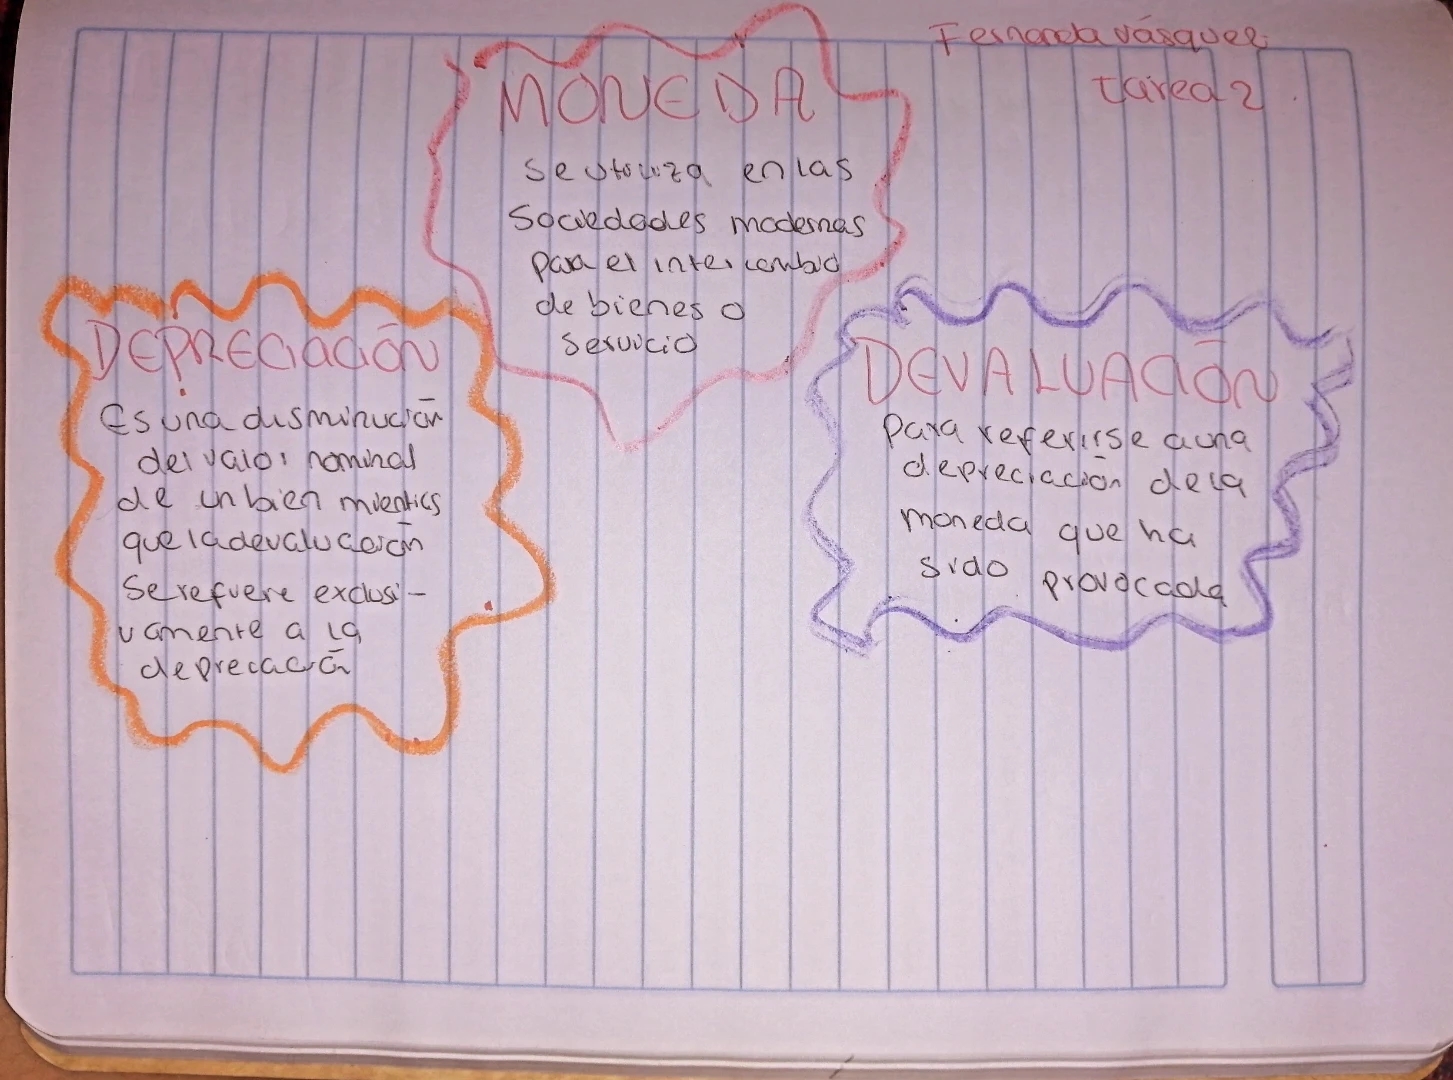 Fernanda Vásquez
tarea 2
MONEDA
Se utiliza en las
Sociedades modernas
para el intercambio
de bienes o
Servicio
DEPRECIACIÓN
Es una disminución
del valor nominal
de un bien mientras
que la devaluación
Se refiere exclusi-
vamente a la
deprecación
DEVALUACIÓN
para referirse a una
depreciación de la
moneda que ha
sido provocada